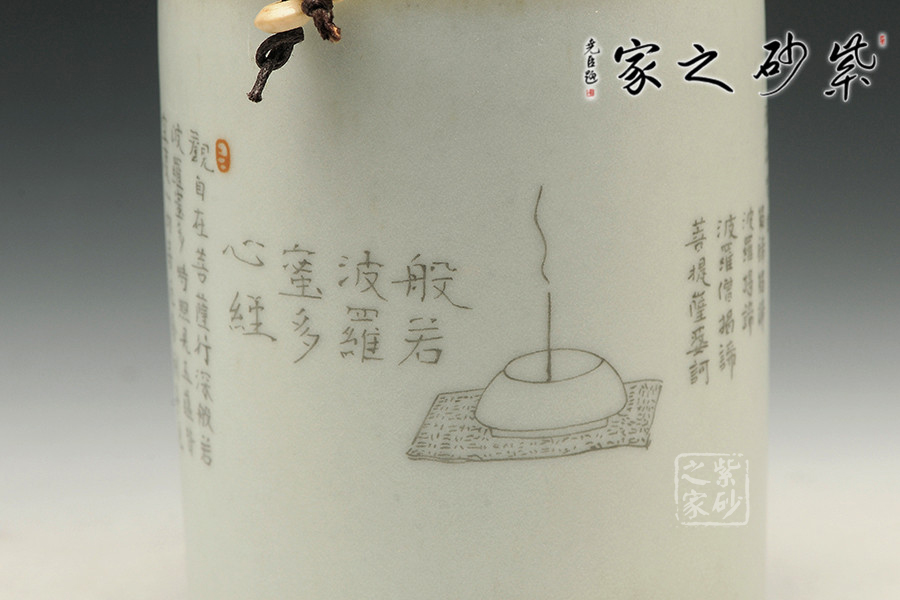 紫砂之家
堯臣題
般若
波羅
蜜多
心經
觀自在菩薩行深般若
波羅蜜多時照見五蘊皆
揭諦揭諦
波羅揭諦
波羅僧揭諦
菩提薩婆訶
紫砂
之家